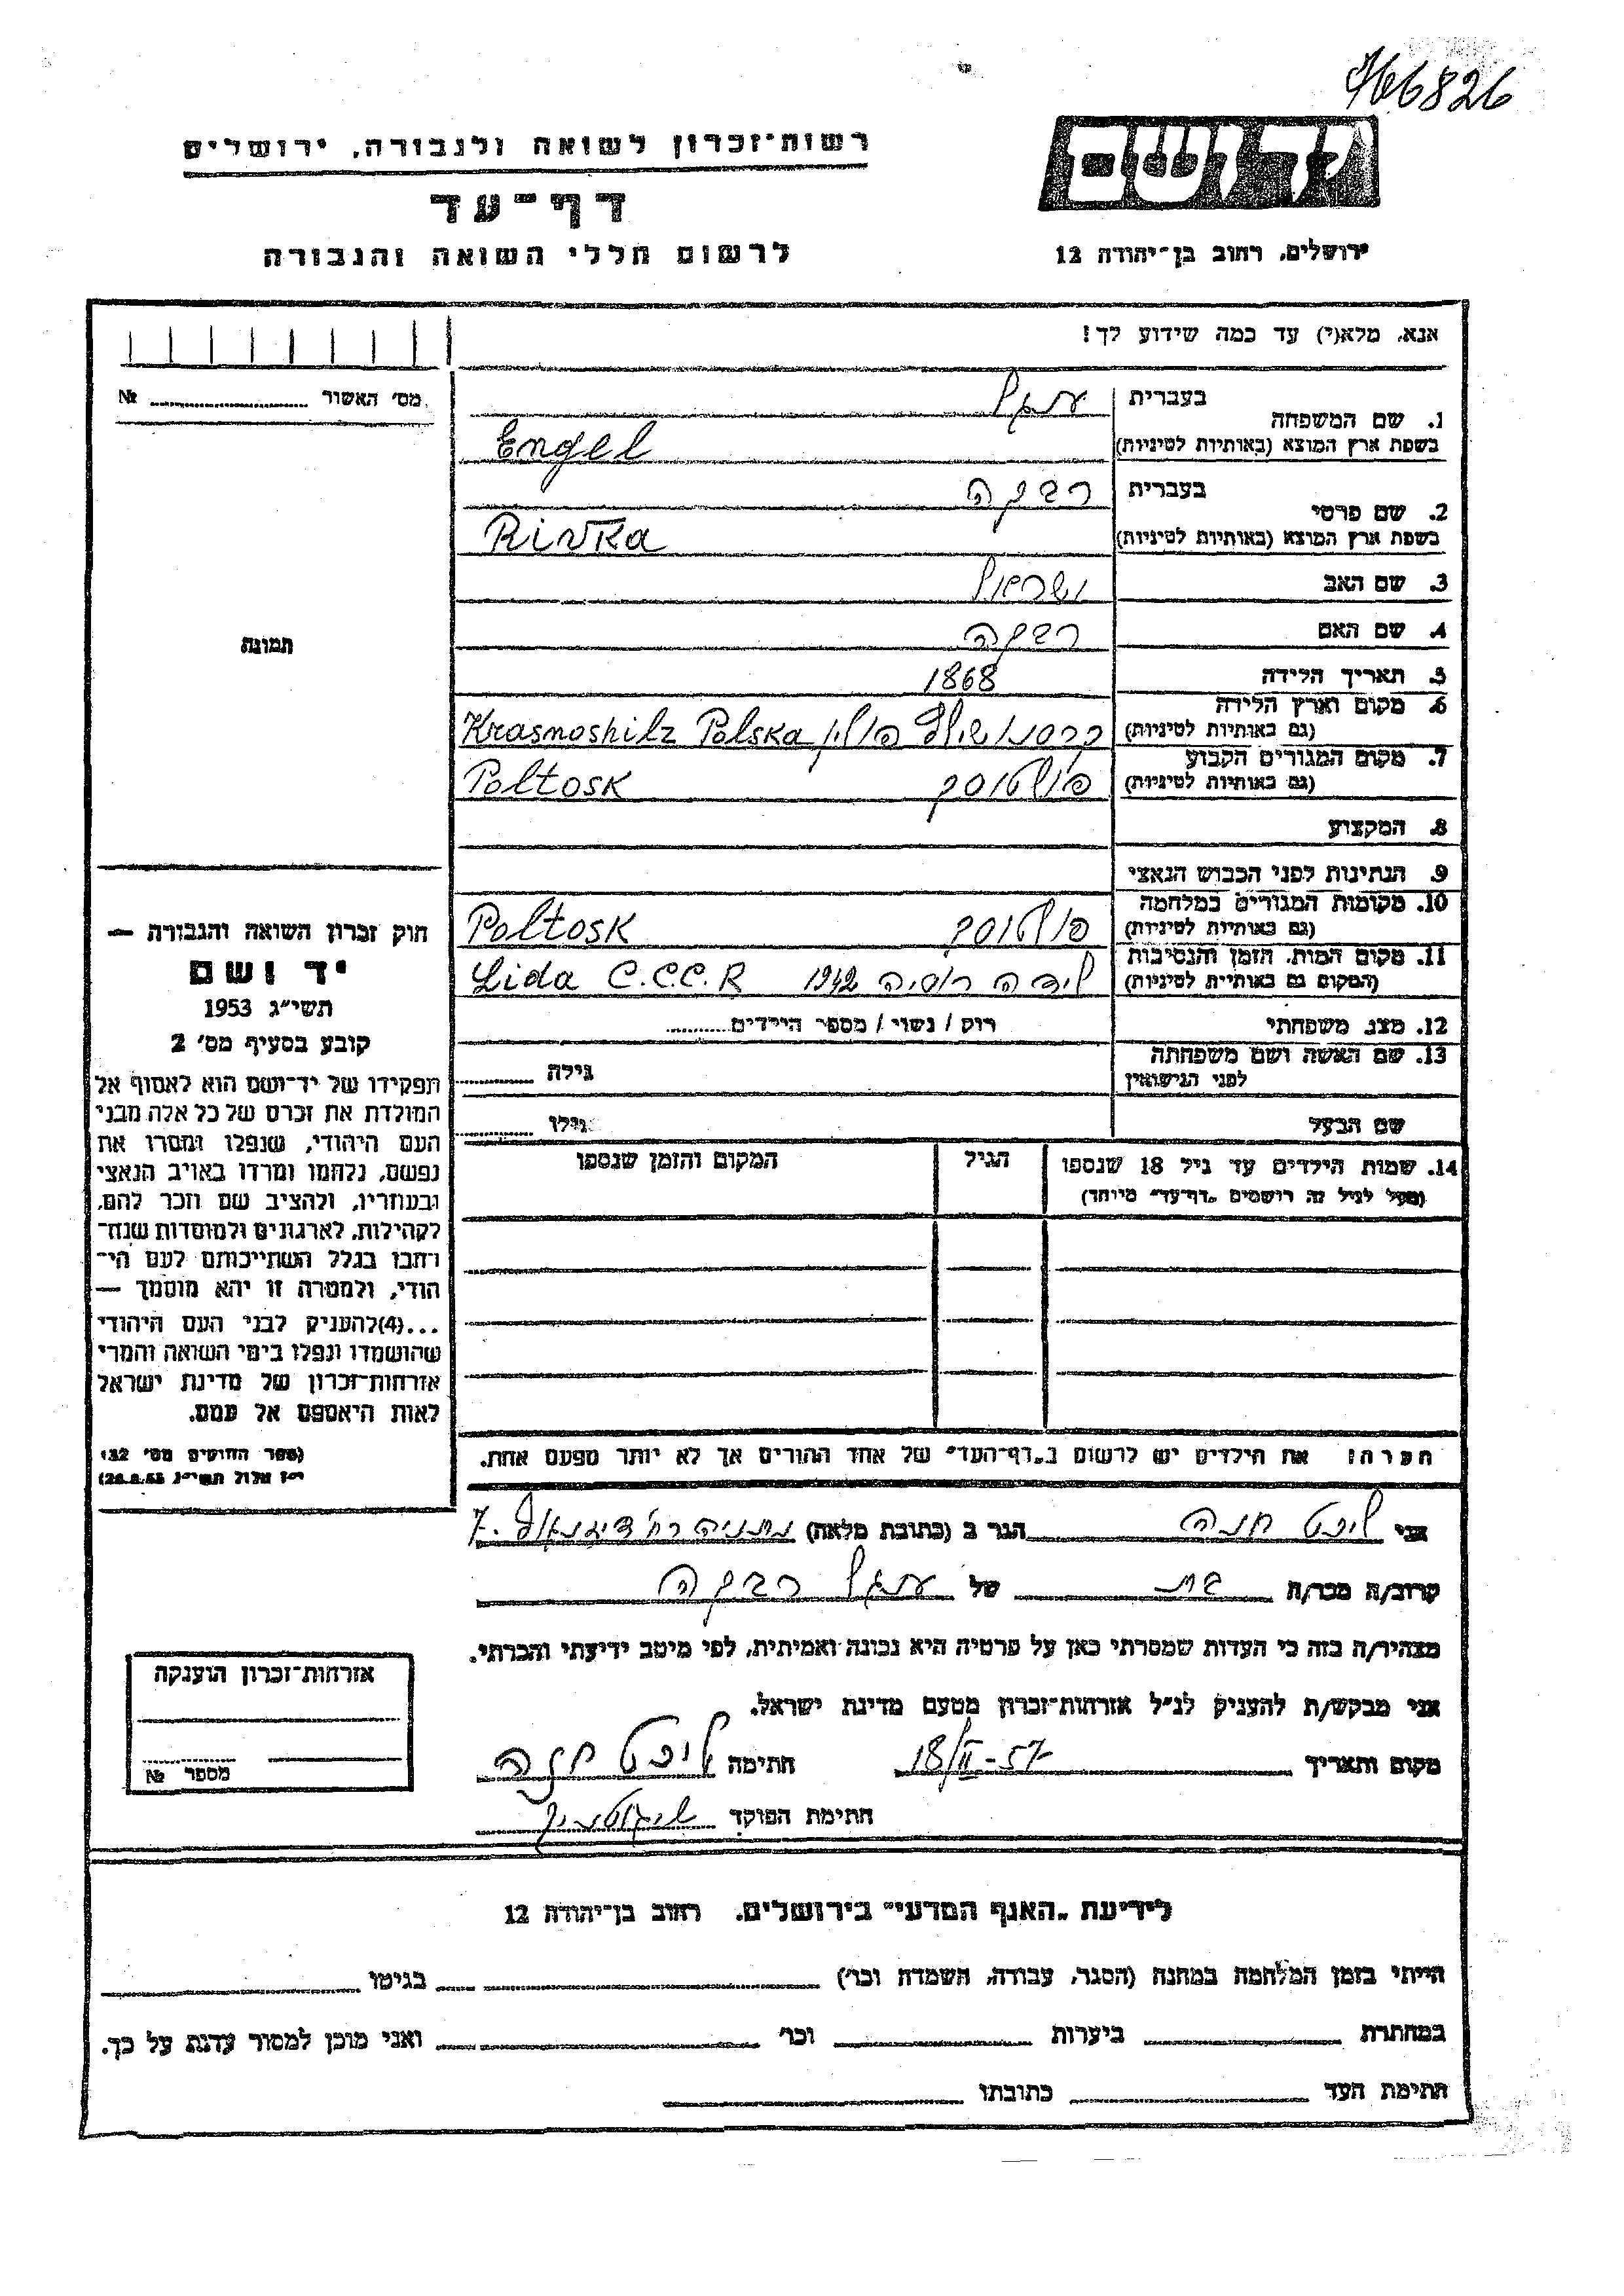 466826
יד ושם
רשות-זכרון לשואה ולגבורה, ירושלים
דף-עד
לרשום חללי השואה והגבורה
ירושלים, רחוב בן-יהודה 12
אנא, מלא(י) עד כמה שידוע לך!
מס׳ האשור № ....................
1. שם המשפחה
בעברית ענגל
בשפת ארץ המוצא (באותיות לטיניות) Engel
2. שם פרטי
בעברית רבקה
בשפת ארץ המוצא (באותיות לטיניות) Rivka
3. שם האב ישראל
4. שם האם רבקה
תמונה
5. תאריך הלידה 1868
6. מקום וארץ הלידה (גם באותיות לטיניות) פולין Krasnoshilz Polska
7. מקום המגורים הקבוע (גם באותיות לטיניות) פולטוסק Poltosk
8. המקצוע
9. הנתינות לפני הכבוש הנאצי
10. מקומות המגורים במלחמה (גם באותיות לטיניות) פולטוסק Poltosk
11. מקום המות, הזמן והנסיבות (המקום גם באותיות לטיניות) לידה רוסיה 1942 Lida C.C.C.R
12. מצב משפחתי רוק / נשוי / מספר הילדים..........
13. שם האשה ושם משפחתה לפני הנישואין גילה ..........
שם הבעל גילו ..........
14. שמות הילדים עד גיל 18 שנספו
(מעל לגיל זה רושמים „דף-עד" מיוחד)
הגיל
המקום והזמן שנספו
הערה: את הילדים יש לרשום ב„דף-העד" של אחד ההורים אך לא יותר מפעם אחת.
חוק זכרון השואה והגבורה —
יד ושם
תשי״ג 1953
קובע בסעיף מס׳ 2
תפקידו של יד-ושם הוא לאסוף אל
המולדת את זכרם של כל אלה מבני
העם היהודי, שנפלו ומסרו את
נפשם, נלחמו ומרדו באויב הנאצי
ובעוזריו, ולהציב שם וזכר להם,
לקהילות, לארגונים ולמוסדות שנח־
רבו בגלל השתייכותם לעם הי־
הודי, ולמטרה זו יהא מוסמך —
...(4)להעניק לבני העם היהודי
שהושמדו ונפלו בימי השואה והמרי
אזרחות-זכרון של מדינת ישראל
לאות היאספם אל עמם.
(ספר החוקים מס׳ 132
י״ז אלול תשי״ג 28.8.53)
אני ליפט חנה הגר ב (כתובת מלאה) נתניה רח׳ 7
קרוב/ה מכר/ה בת של ענגל רבקה
מצהיר/ה בזה כי העדות שמסרתי כאן על פרטיה היא נכונה ואמיתית, לפי מיטב ידיעתי והכרתי.
אני מבקש/ת להעניק לנ״ל אזרחות-זכרון מטעם מדינת ישראל.
מקום ותאריך 18/II-57 חתימה ליפט חנה
חתימת הפוקד
אזרחות-זכרון הוענקה
מספר №
לידיעת „האגף המדעי" בירושלים, רחוב בן-יהודה 12
הייתי בזמן המלחמה במחנה (הסגר, עבודה, השמדה וכו׳) בגיטו
במחתרת ביערות וכו׳ ואני מוכן למסור עדות על כך.
חתימת העד כתובתו